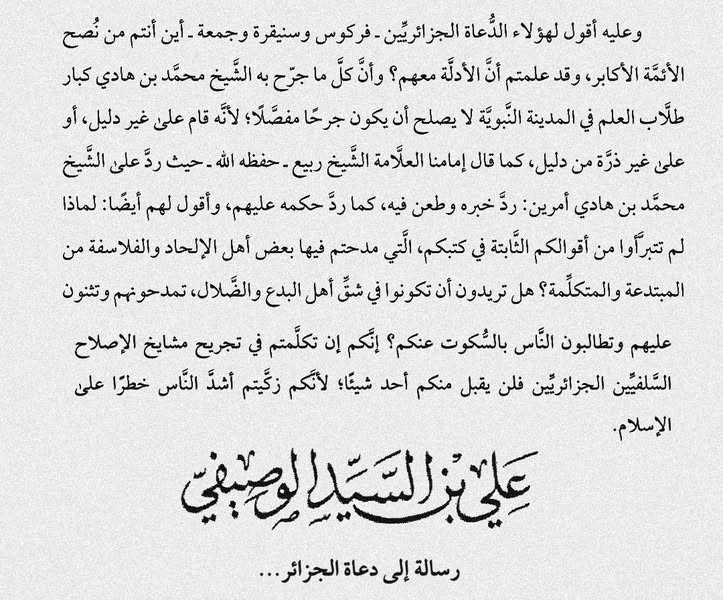 وعليه أقول لهؤلاء الدُّعاة الجزائريِّين ـ فركوس وسنيقرة وجمعة ـ أين أنتم من نُصح
الأئمَّة الأكابر، وقد علمتم أنَّ الأدلَّة معهم؟ وأنَّ كلَّ ما جرّح به الشَّيخ محمَّد بن هادي كبار
طلَّاب العلم في المدينة النَّبويَّة لا يصلح أن يكون جرحًا مفصَّلًا؛ لأنَّه قام علىٰ غير دليل، أو
علىٰ غير ذرَّة من دليل، كما قال إمامنا العلَّامة الشَّيخ ربيع ـ حفظه الله ـ حيث ردَّ علىٰ الشَّيخ
محمَّد بن هادي أمرين: ردَّ خبره وطعن فيه، كما ردَّ حكمه عليهم، وأقول لهم أيضًا: لماذا
لم تتبرَّأوا من أقوالكم الثَّابتة في كتبكم، الَّتي مدحتم فيها بعض أهل الإلحاد والفلاسفة من
المبتدعة والمتكلِّمة؟ هل تريدون أن تكونوا في شقِّ أهل البدع والضَّلال، تمدحونهم وتثنون
عليهم وتطالبون النَّاس بالسُّكوت عنكم؟ إنَّكم إن تكلَّمتم في تجريح مشايخ الإصلاح
السَّلفيِّين الجزائريِّين فلن يقبل منكم أحد شيئًا؛ لأنَّكم زكَّيتم أشدَّ النَّاس خطرًا علىٰ
الإسلام.
عَلِي بْنُ السَّيِّدِ الوَصِيفِيّ
رسالة إلى دعاة الجزائر...